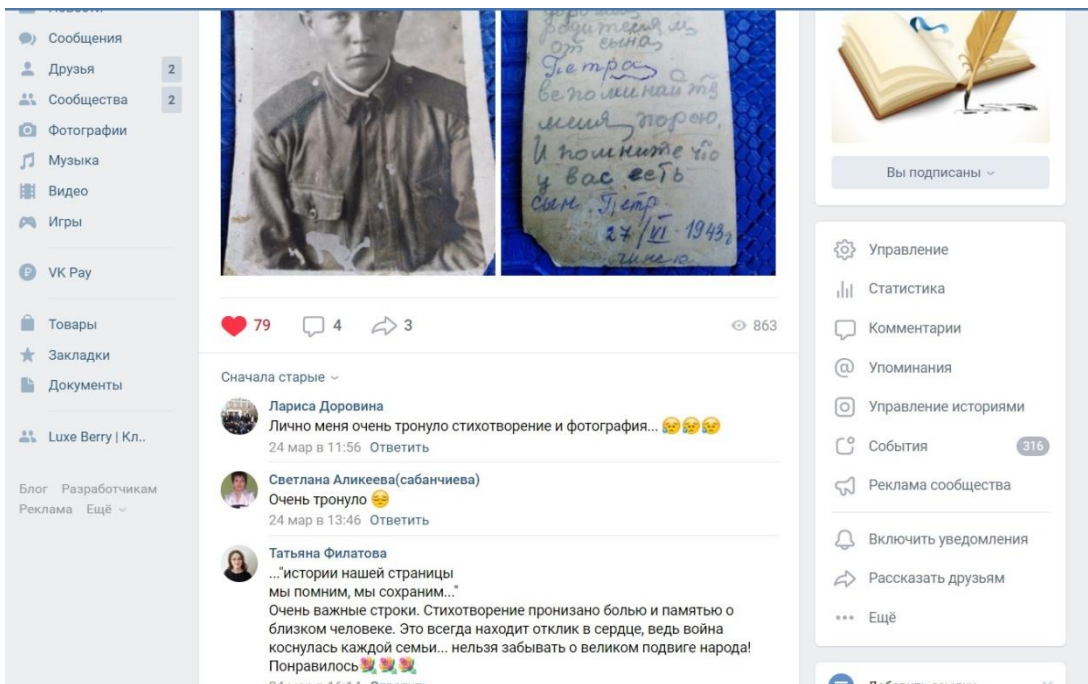 Сообщения
Друзья 2
Сообщества 2
Фотографии
Музыка
Видео
Игры
VK Pay
Товары
Закладки
Документы
Luxe Berry | Кл..
Блог Разработчикам
Реклама Ещё
родителям
от сына
Петра
вспоминайте
меня порою.
И помните что
у вас есть
сын Петр
27/VI-1943г
79 4 3 863
Сначала старые
Лариса Доровина
Лично меня очень тронуло стихотворение и фотография...
24 мар в 11:56 Ответить
Светлана Аликеева(сабанчиева)
Очень тронуло
24 мар в 13:46 Ответить
Татьяна Филатова
..."истории нашей страницы
мы помним, мы сохраним..."
Очень важные строки. Стихотворение пронизано болью и памятью о
близком человеке. Это всегда находит отклик в сердце, ведь война
коснулась каждой семьи... нельзя забывать о великом подвиге народа!
Понравилось
Вы подписаны
Управление
Статистика
Комментарии
Упоминания
Управление историями
События 316
Реклама сообщества
Включить уведомления
Рассказать друзьям
Ещё